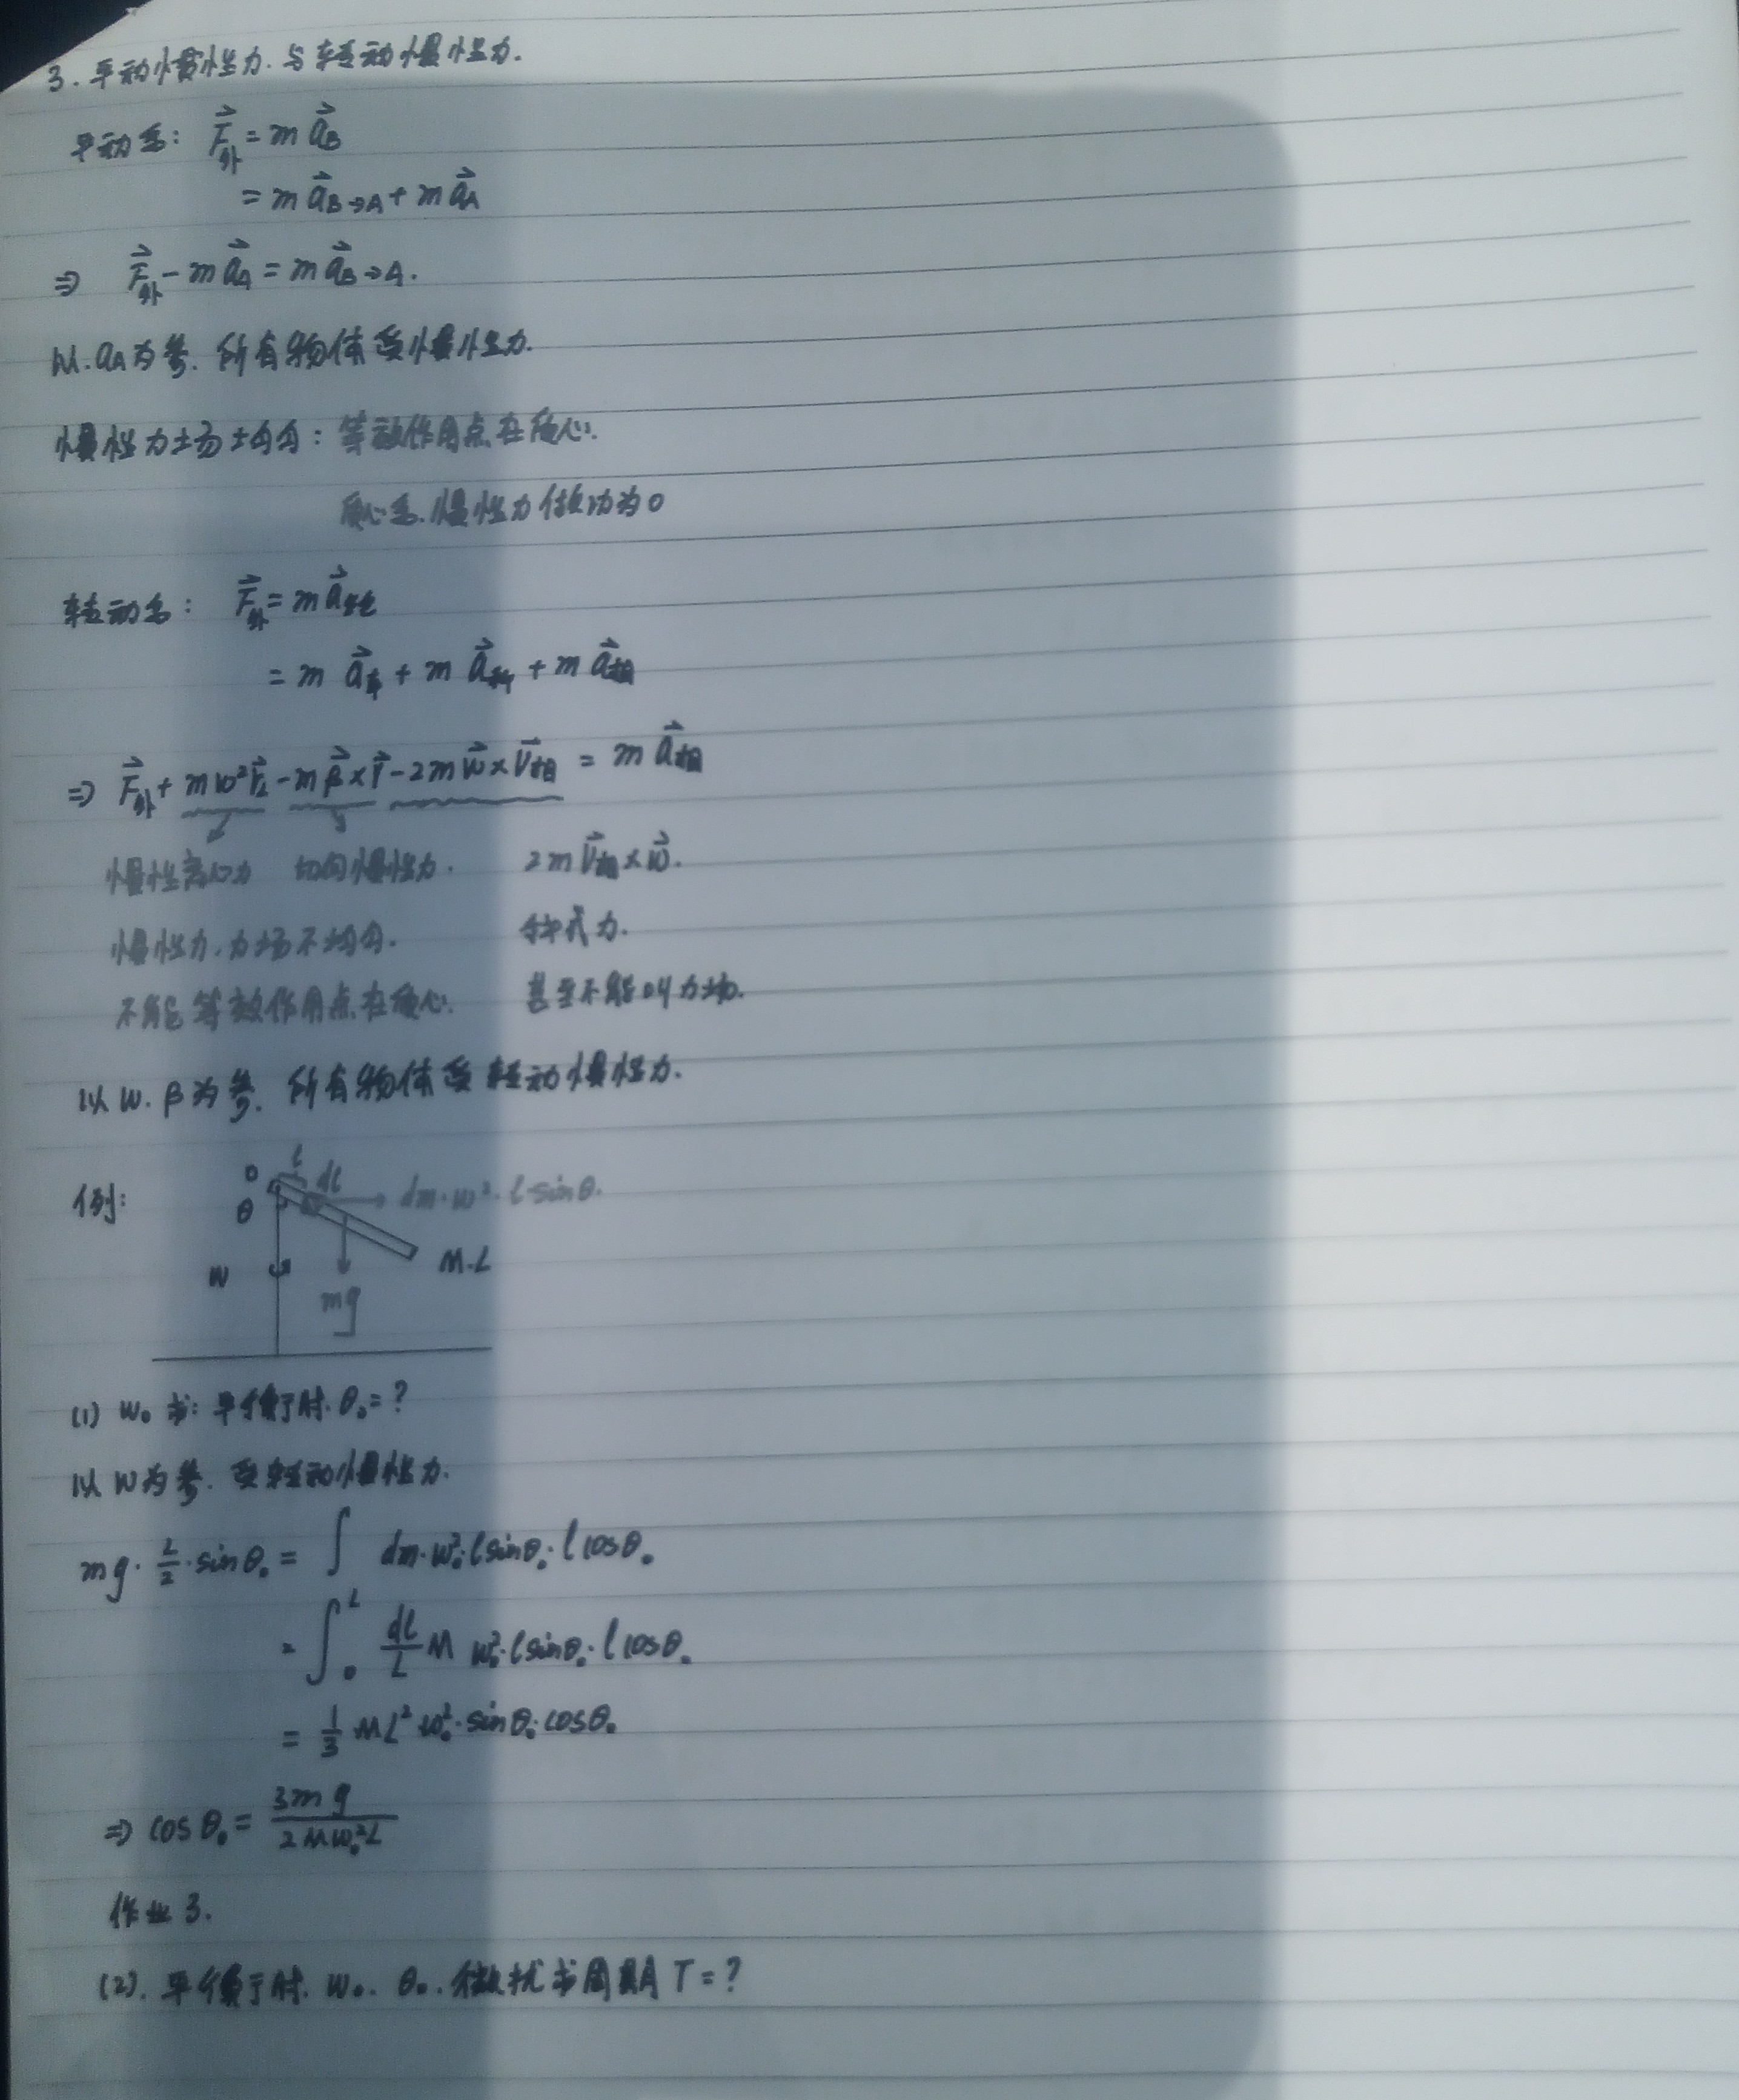 3. 平动惯性力.与转动惯性力.
平动系: F⃗外 = m a⃗B
= m a⃗B→A + m a⃗A
⇒ F⃗外 - m a⃗A = m a⃗B→A.
以.aA为参.所有物体受惯性力.
惯性力场均匀: 等效作用点在质心.
质心系.惯性力做功为0
转动系: F⃗外 = m a⃗绝
= m a⃗牵 + m a⃗科 + m a⃗相
⇒ F⃗外 + mω²r⃗⊥ - mβ⃗×r⃗ - 2mω⃗×v⃗相 = m a⃗相
惯性离心力 切向惯性力. 2m v⃗相×ω⃗.
惯性力.力场不均匀. 科氏力.
不能等效作用点在质心. 甚至不能叫力场.
以ω.β为参.所有物体受转动惯性力.
例:
O l dl dm·ω²·l·sinθ.
θ
ω M.L
mg
(1) ω₀ 求: 平衡时.θ₀=?
以ω为参.受转动惯性力.
mg·L/2·sinθ₀ = ∫ dm·ω₀²·lsinθ₀·lcosθ₀
= ∫₀ᴸ dl/L M ω₀²·lsinθ₀·lcosθ₀
= 1/3 ML²ω₀²·sinθ₀·cosθ₀
⇒ cosθ₀ = 3mg/2Mω₀²L
作业3.
(2).平衡时.ω₀.θ₀.微扰求周期T=?